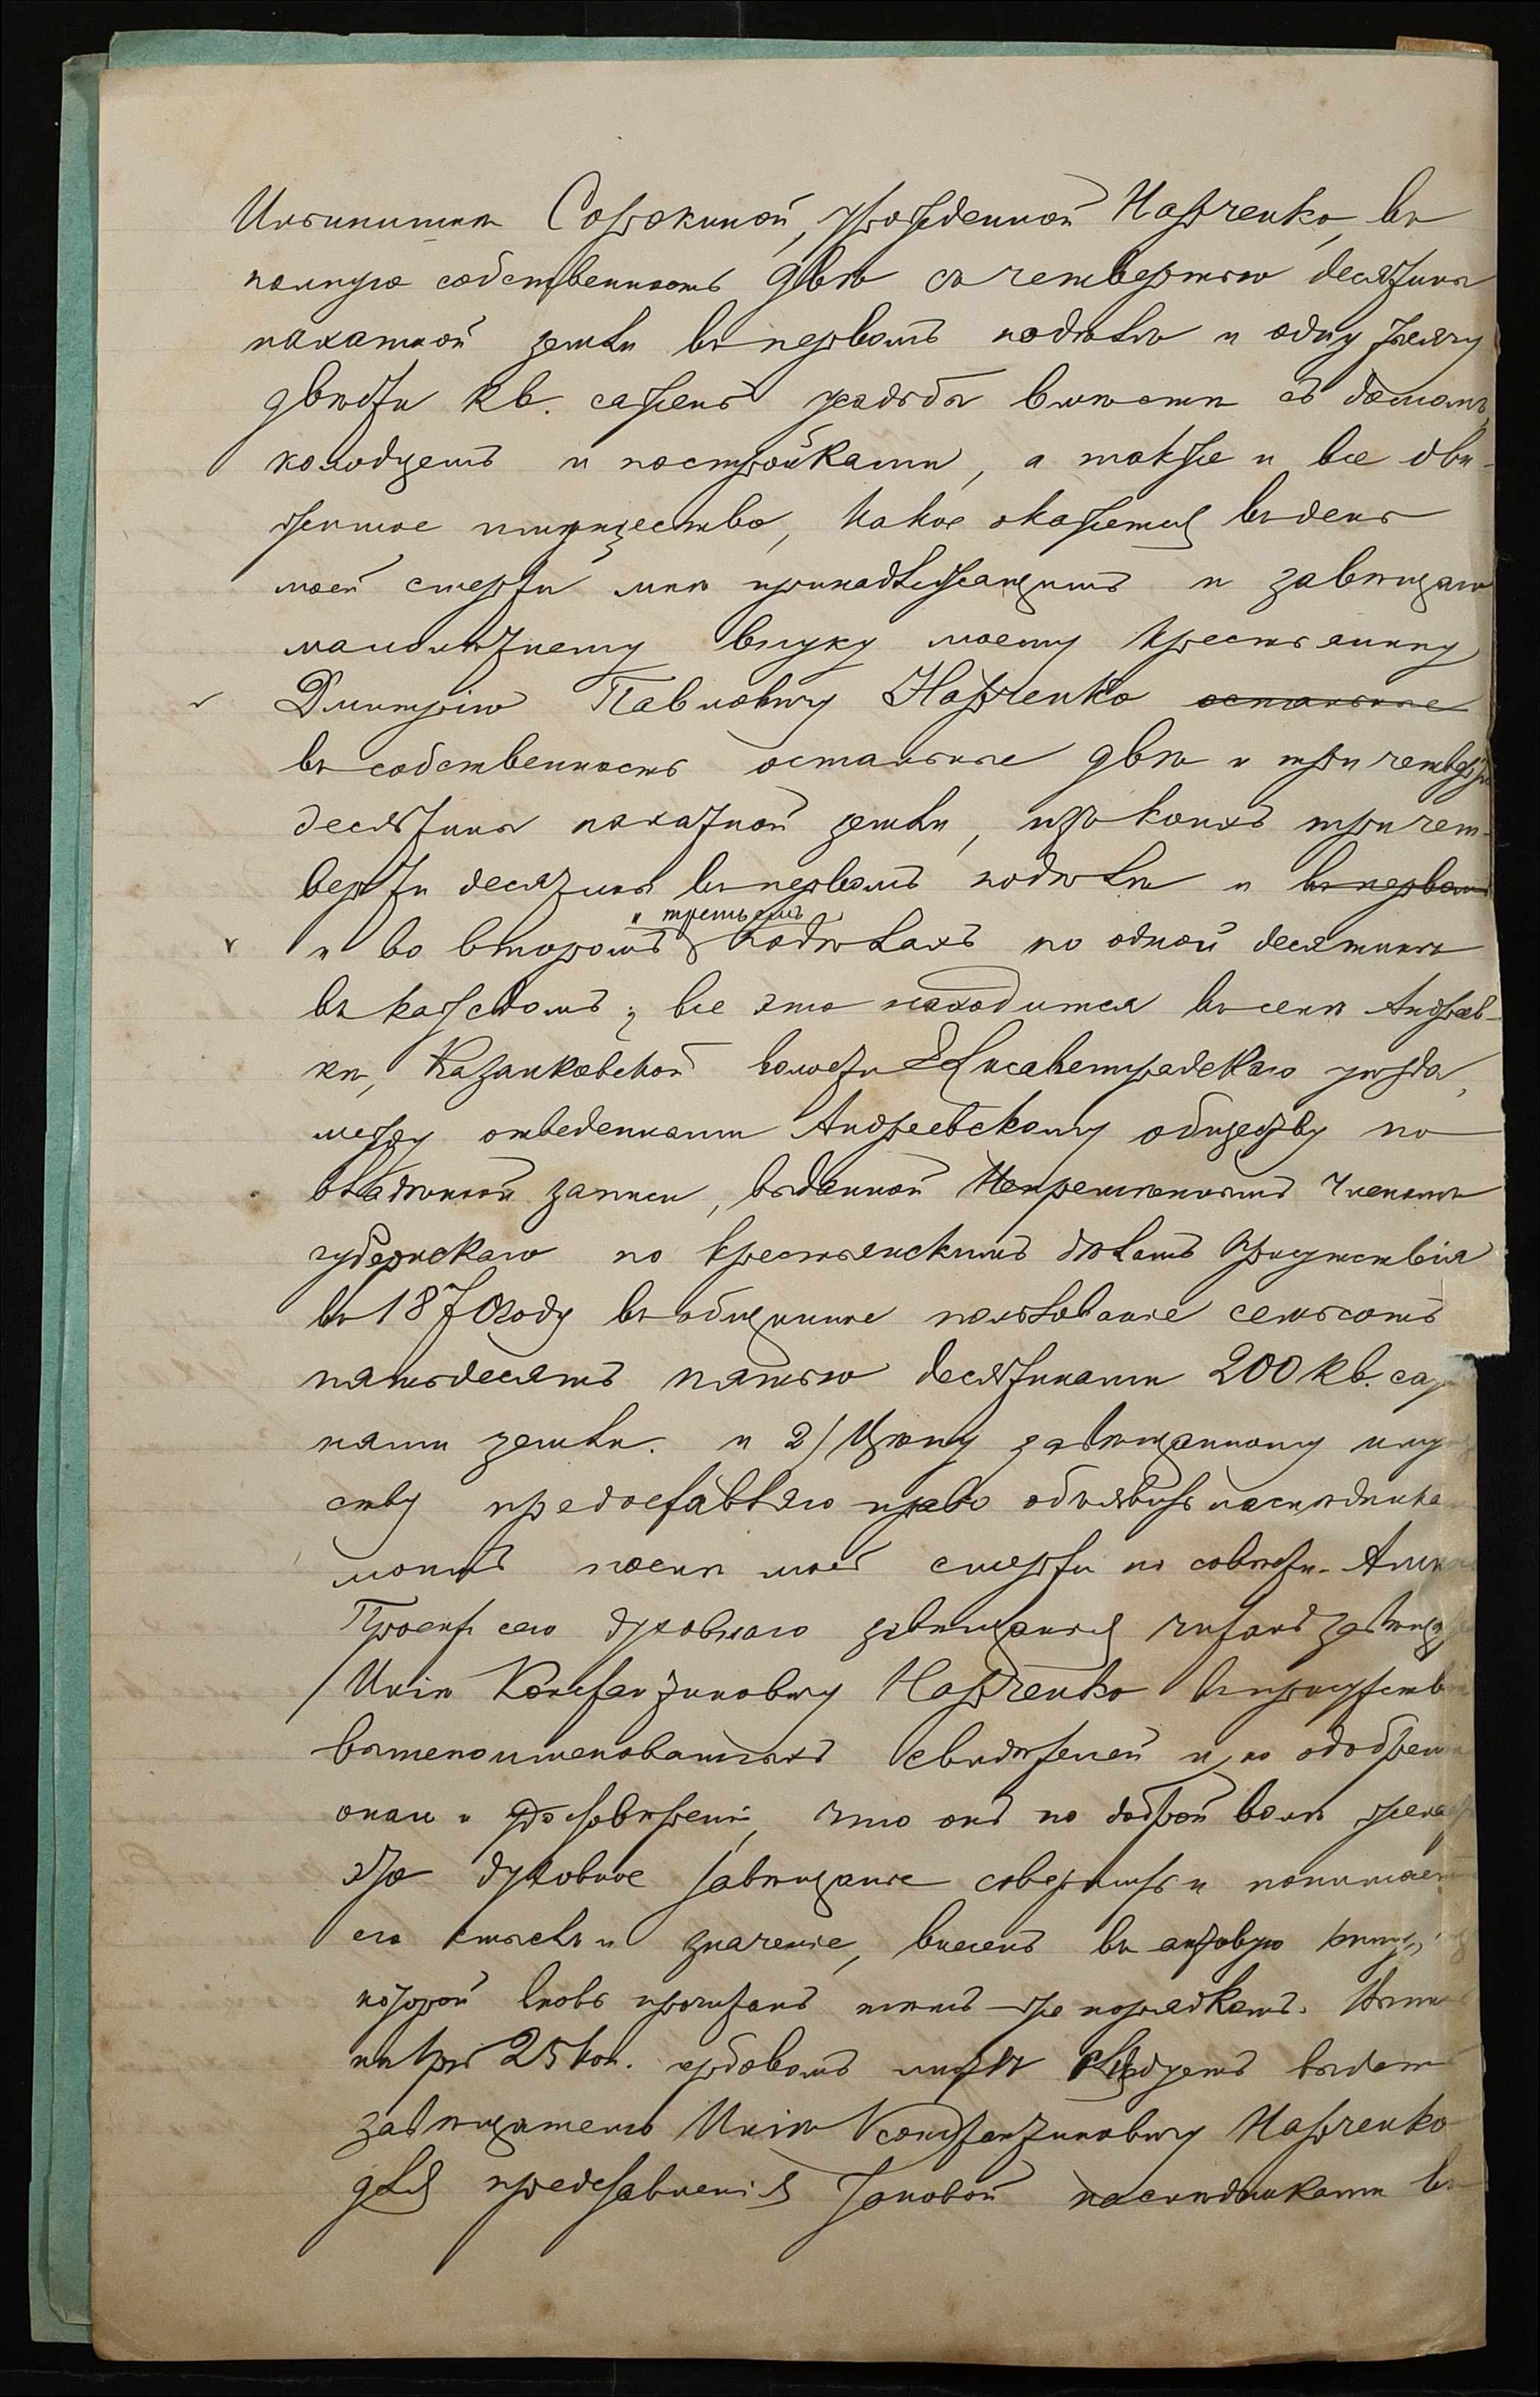 Ильинишнѣ Сорокиной, урожденной Нарченко, въ
полную собственность двѣ съ четвертью десятины
пахатной земли въ первомъ подѣлѣ и одну тысячу
двѣсти кв. сажень усадьбы вмѣстѣ съ домомъ,
колодцемъ и постройками, а также и все дви-
жимое имущество, какое окажется въ день
моей смерти мнѣ принадлежащимъ и завѣщаю
малолѣтнему внуку моему крестьянину
Дмитрію Павловичу Нарченко остальные
въ собственность остальные двѣ и три четверти
десятины пахатной земли, изъ коихъ три чет-
верти десятины въ первомъ подѣлѣ и въ первомъ
и во второмъ и третьемъ подѣлахъ по одной десятинѣ
въ каждомъ; все это находится въ селѣ Андреев-
кѣ, Казанковской волости Елисаветградскаго уѣзда,
между отведенными Андреевскому обществу по
владѣнной записи, выданной Непремѣннымъ Членомъ
губернскаго по крестьянскимъ дѣламъ Присутствія
въ 1870 году въ общинное пользованіе семьсотъ
пятьдесятъ пятью десятинами 200 кв. саж
нями земли. и 2/ Цѣну завѣщанному иму
ству предоставляю право объявить наслѣдника
моимъ послѣ моей смерти по совѣсти.
Проектъ сего духовнаго завѣщанія читанъ завѣща
Иліи Константиновичу Нарченко въ присутствіи
вышепоименованныхъ свидѣтелей и, по одобреніи
онаго и удостовѣреніи, что онъ по доброй волѣ желаетъ
это духовное завѣщаніе совершить и понимаетъ
его смыслъ и значеніе, внесенъ въ актовую книгу,
которой вновь прочитанъ тѣмъ-же порядкомъ.
25 коп. гербовомъ листѣ слѣдуетъ выдать
завѣщателю Иліи Константиновичу Нарченко
для представленія таковой наслѣдниками въ